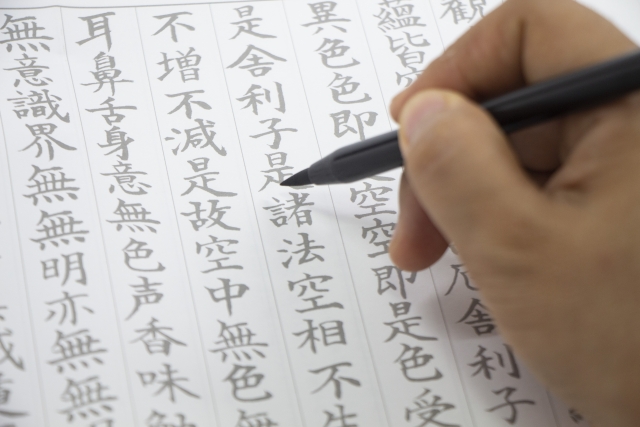 観
蘊皆空厄舎利子
異色色即空空即是色受
是舎利子是諸法空相不生
不増不減是故空中無色無
耳鼻舌身意無色声香味触
無意識界無無明亦無無